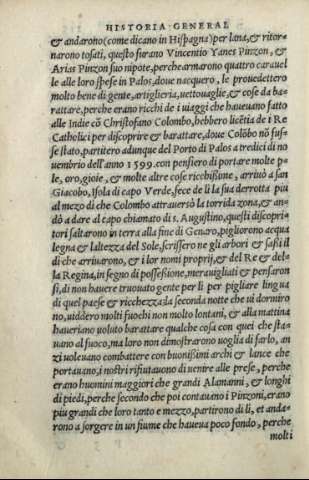 HISTORIA GENERAL
& andarono (come dicano in Hispagna) per lana, & ritor-
narono tosati, questo furano Vincentio Yanes Pinzon, &
Arias Pinzon suo nipote, perche armarono quattro carauel
le alle loro spese in Palos, doue nacquero, se prouedettero
molto bene di gente, artiglieria, vettouaglie, & cose da ba-
rattare, perche erano ricchi de i uiaggi che haueuano fatto
alle Indie cõ Christofano Colombo, hebbero licẽtia de i Re
Catholici per discoprire & barattare, doue Colõbo nõ fus-
se stato, partitero adunque del Porto di Palos a tredici di no
uembrio dell'anno 1599. con pensiero di portare molte p-
le, oro, gioie, & molte altre cose ricchissime, arriuò a san
Giacobo, Isola di capo Verde, fece de lì la sua derrotta piu
al mezo di che Colombo attrauersò la torrida zona, & an-
dò a dare al capo chiamato di s. Augustino, questi discopri-
tori saltarono in terra alla fine di Genaro, pigliorono acqua
legna & laltezza del Sole, scrissero ne gli arbori & sassi il
dì che arriuarono, & i lor nomi proprij, & del Re & del-
la Regina, in segno di possessione, merauigliati & pensaron
sì, di non hauere truouato gente per li per pigliare lingua
di quel paese & ricchezza: la seconda notte che uì dormiro
no, uiddero molti fuochi non molto lontani, & alla mattina
haueriano voluto barattare qualche cosa con quei che sta-
uano al fuoco, ma loro non dimostrarono uoglia di farlo, an
zi voleuano combattere con buonissimi archi & lance che
portauano, i nostri rifiutauono di uentre alle prese, perche
erano huomini maggiori che grandi Alamanni, & longhi
di piedi, perche secondo che poi contauano i Pinzoni, erano
piu grandi che loro tanto e mezzo, partirono di lì, et anda-
rono a sorgere in un fiume che haueua poco fondo, perche
molti